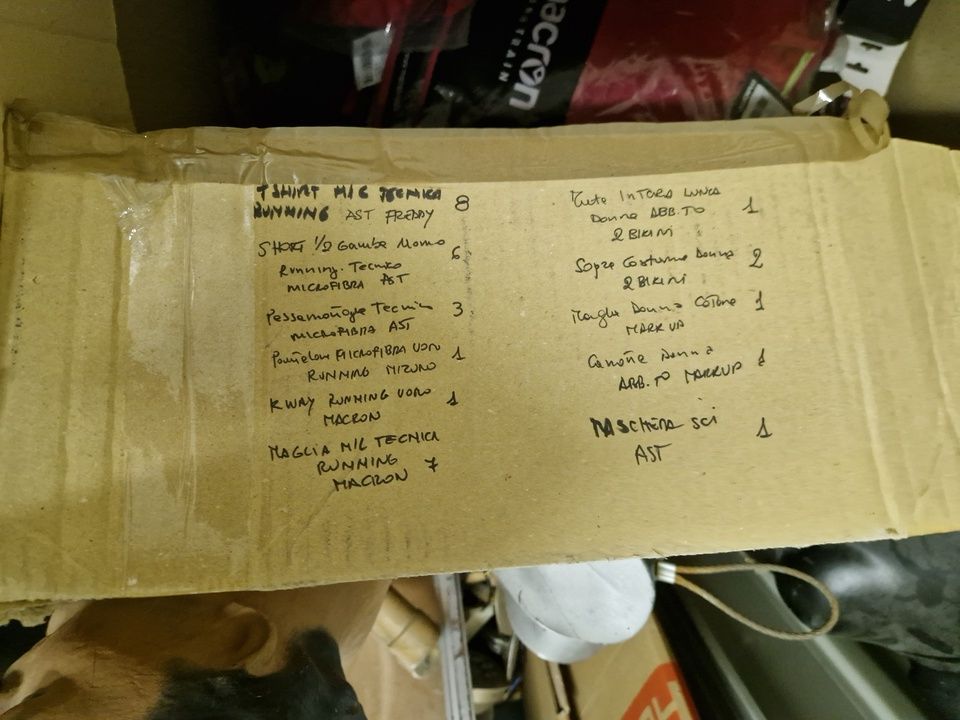 macron
T SHIRT M/C TECNICA
RUNNING AST FREDDY 8
SHORT 1/2 Gamba Uomo 6
Running Tecnico
MICROFIBRA AST
Tecnico 3
MICROFIBRA AST
MICROFIBRA UOMO 1
RUNNING MIZUNO
KWAY RUNNING UOMO 1
MACRON
MAGLIA M/C TECNICA
RUNNING
MACRON 7
Tuta INTERA LUNGA 1
Donna ABB.TO
2 BIKINI
Sopra Costume Donna 2
2 BIKINI
Maglia Donna COTONE 1
MARKUP
Donna 1
ABB.TO MARKUP
MASCHERA SCI 1
AST